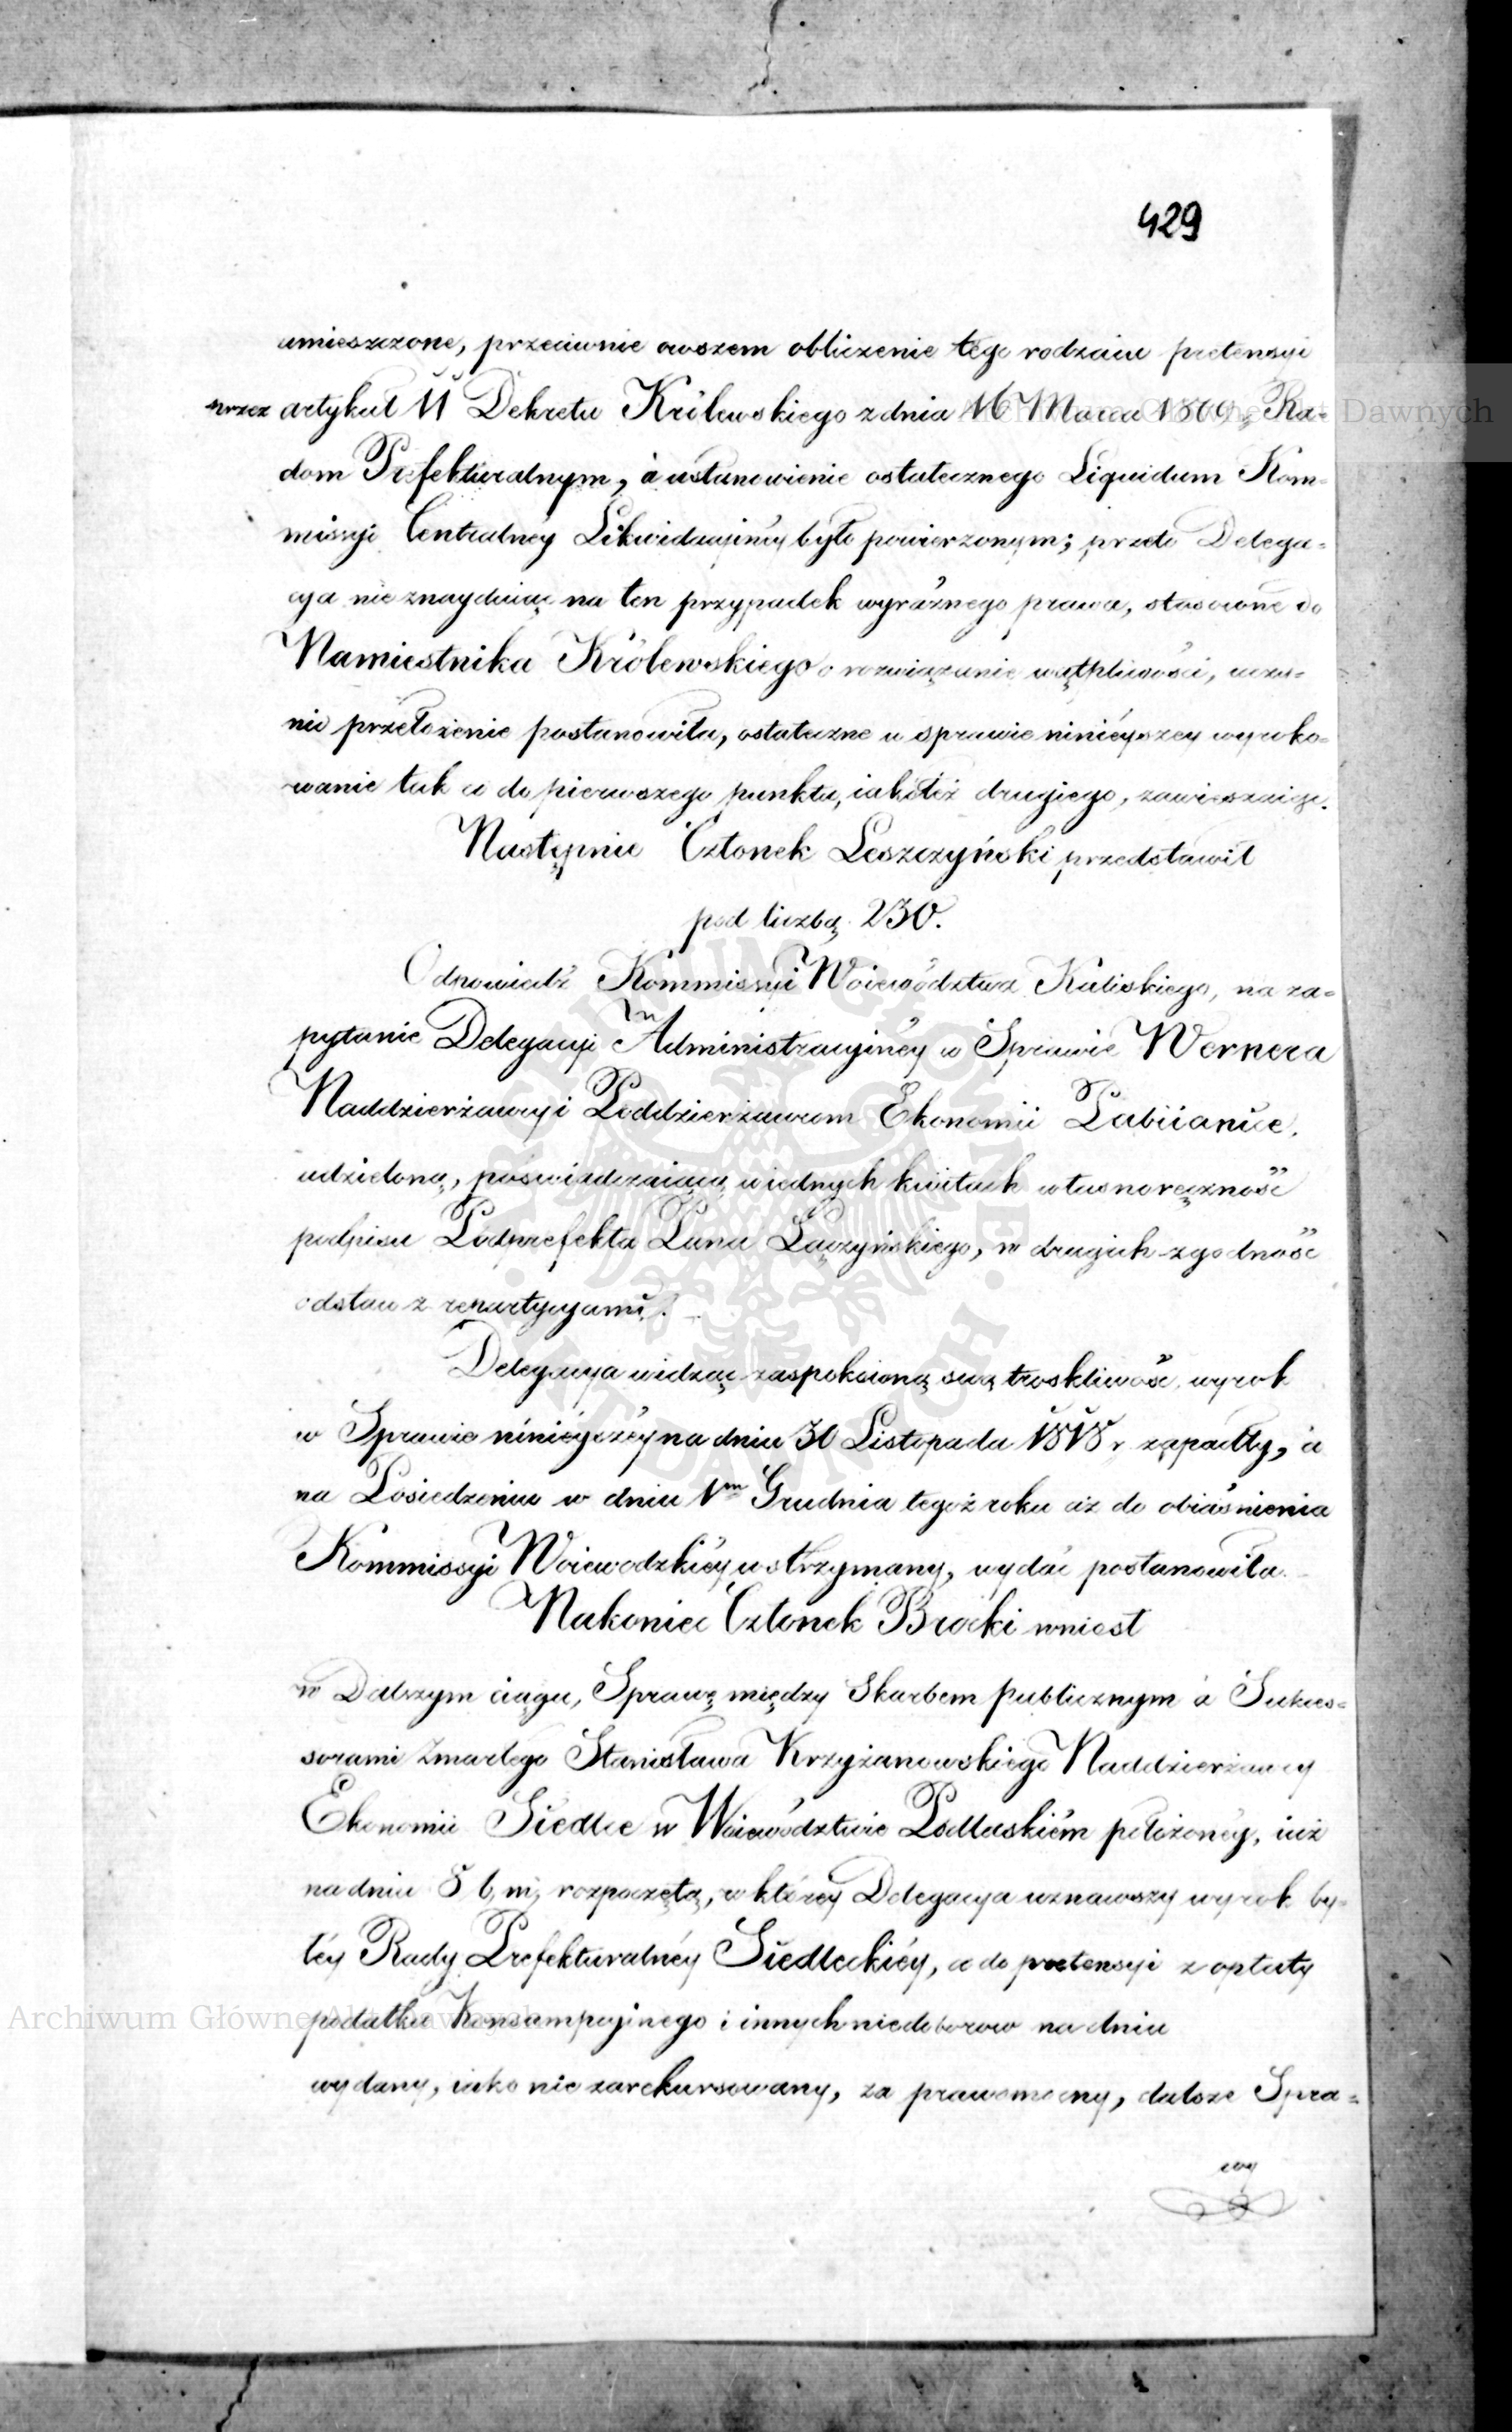 429
umieszczone, przeciwnie owszem obliczenie tego rodzaiu pretensyi
przez artykuł 11 Dekretu Królewskiego z dnia 16 Marca 1809, Ra-
dom Prefekturalnym, à ustanowienie ostatecznego Liquidum Kom-
missyi Centralnéy Likwidacyinéy było powierzonym; przeto Delega-
cya nie znayduiąc na ten przypadek wyraźnego prawa, stosowne do
Namiestnika Królewskiego o rozwiązanie wątpliwości, uczy-
nić przełożenie postanowiła, ostateczne w sprawie ninieyszey wyroko-
wanie tak co do pierwszego punktu, iakoteż drugiego, zawieszaiąc.
Następnie Członek Leszczyński przedstawił
pod liczbą 230.
Odpowiedź Kommissyi Woiewództwa Kaliskiego, na za-
pytanie Delegacyi Administracyinéy w Sprawie Wernera
Naddzierżawcy i Poddzierżawcom Ekonomii Pabiianice.
udzieloną, poświadczaiącą w iednych kwitach własnoręczność
podpisu Podprefekta Pana Łączyńskiego, w drugich zgodność
odstaw z repartycyami.
Delegacya widząc zaspokoioną swą troskliwość, wyrok
w Sprawie ninieyszéy na dniu 30 Listopada 1818 r. zapadły, à
na Posiedzeniu w dniu 1m Grudnia tegoż roku aż do obiaśnienia
Kommissyi Woiewodzkiéy wstrzymany, wydać postanowiła.
Nakoniec Członek Brocki wniósł
w Dalszym ciągu, Sprawę między Skarbem publicznym à Sukces-
sorami Zmarłego Stanisława Krzyżanowskiego Naddzierżawcy
Ekonomii Siedlce w Woiewództwie Podlaskiém położonéy, iuż
na dniu 5 b. m. rozpoczętą, w któréy Delegacya uznawszy wyrok by-
łéy Rady Prefekturalnéy Siedleckiéy, co do pretensyi z opłaty
podatku Konsumpcyinego i innych niedoborow na dniu
wydany, iako nie zarekursowany, za prawomocny, dalsze Spra-
wy
Archiwum Główne Akt Dawnych